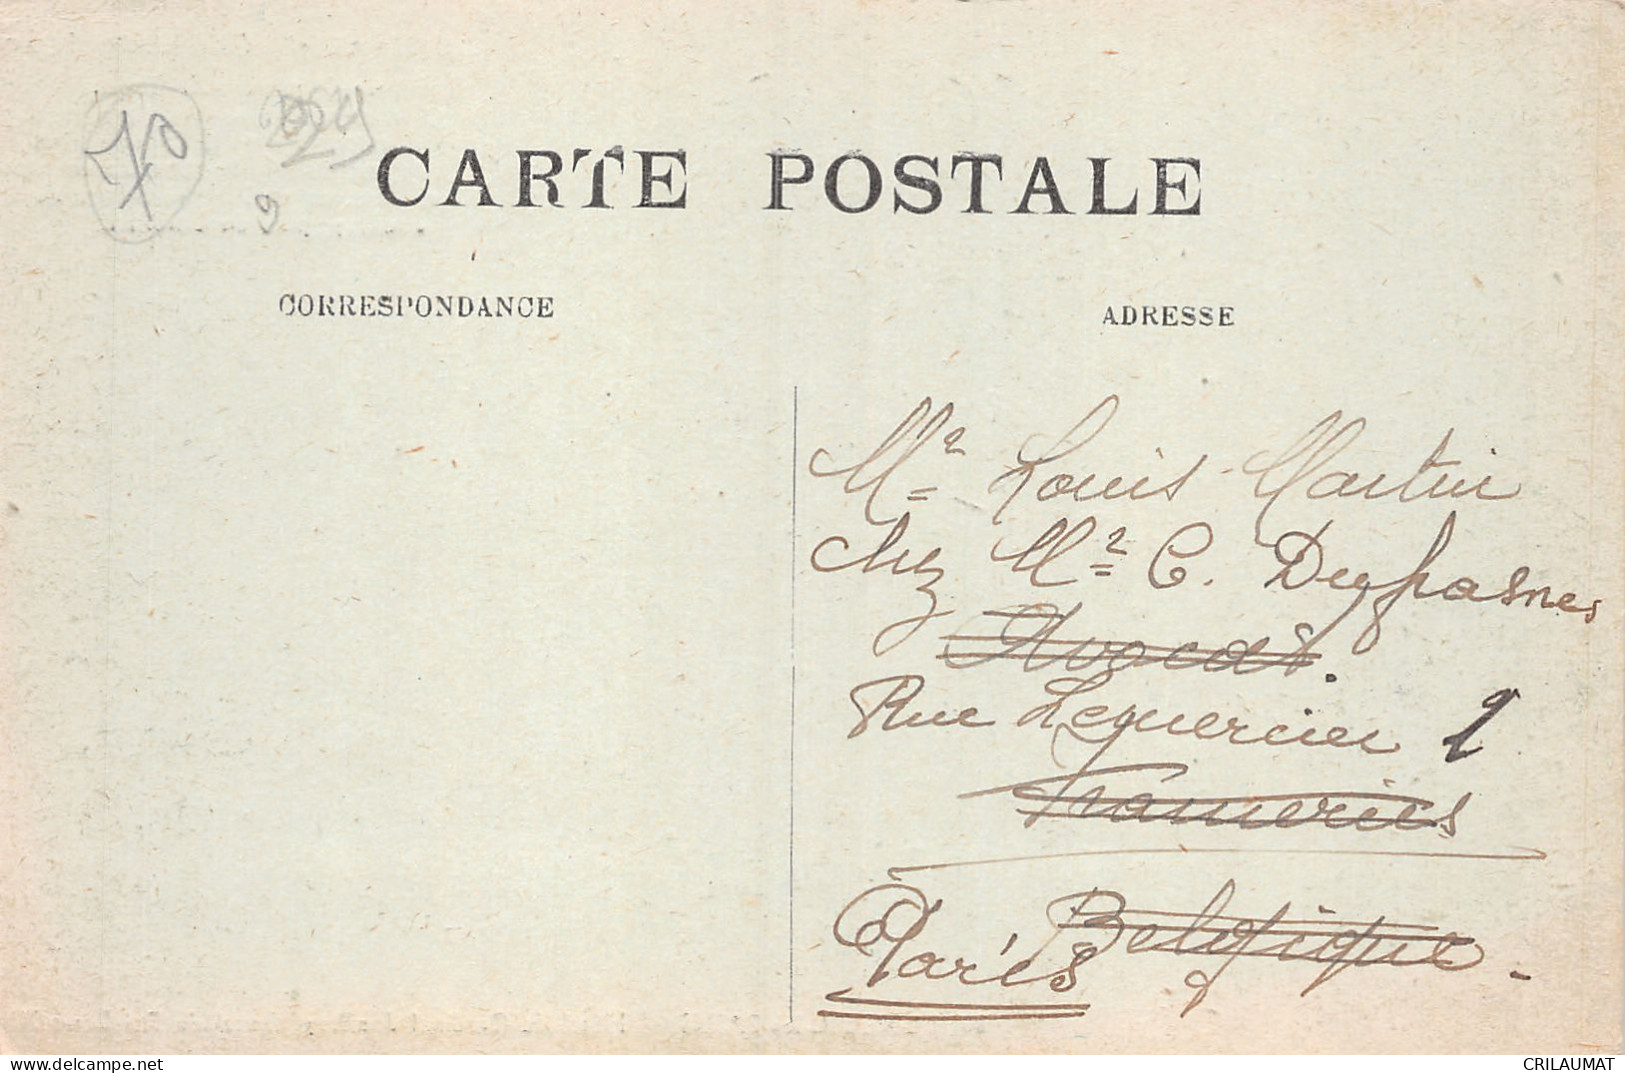 CARTE POSTALE
CORRESPONDANCE
ADRESSE
Mr Louis Martin
chez Mr C. Dufrasnes
Avocat.
Rue Lequercier 1
Frameries
Belgique -
Paris
delcampe.net
CRILAUMAT